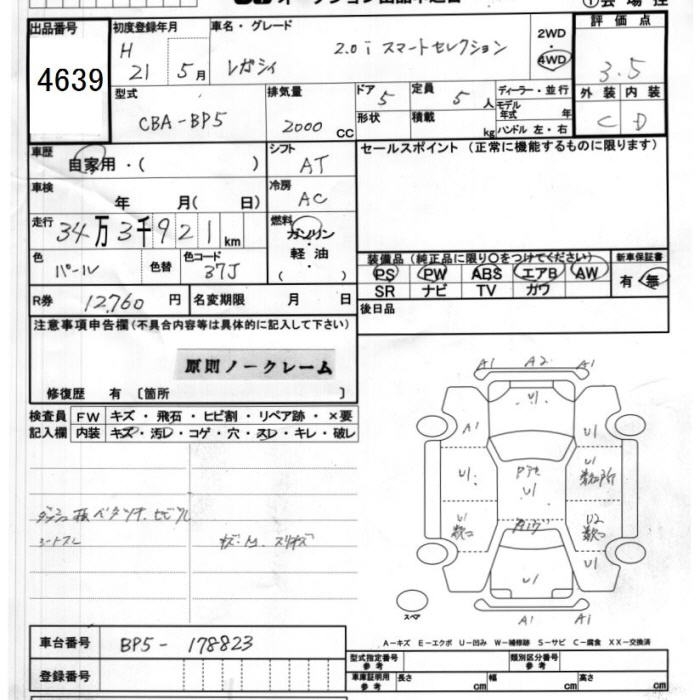 出品番号 初度登録年月 車名・グレード 2WD 評価点
4639 H 21 5月 レガシィ 2.0i スマートセレクション ・ 4WD 3.5
型式 排気量 ドア 5 定員 5人 ディーラー・並行 外装 内装
CBA-BP5 2000 CC 形状 積載 kg モデル年式 年 C D
ハンドル 左・右
車歴 自家用・( ) シフト AT セールスポイント(正常に機能するものに限ります)
車検 年 月( 日) 冷房 AC
走行 34万3千921km 燃料 ガソリン・軽油・( )
色 パール 色替 色コード 37J 装備品(純正品に限り○をつけてください) 新車保証書
PS PW ABS エアB AW 有・無
SR ナビ TV カワ
R券 12,760円 名変期限 月 日 後日品
注意事項申告欄(不具合内容等は具体的に記入して下さい)
原則ノークレーム
修復歴 有 [箇所 ]
検査員 FW キズ・飛石・ヒビ割・リペア跡・×要
記入欄 内装 キズ・汚レ・コゲ・穴・スレ・キレ・破レ
シートスレ
A1 A2 A1
U1
A1 U1
U1 U1 U1
U1 U2
U1
スペア
A1 A1
A-キズ E-エクボ U-凹み W-補修跡 S-サビ C-腐食 XX-交換済
車台番号 BP5-178823
型式指定番号 参考 類別区分番号 参考
登録番号 車庫証明用 参考 長さ cm 幅 cm 高さ cm